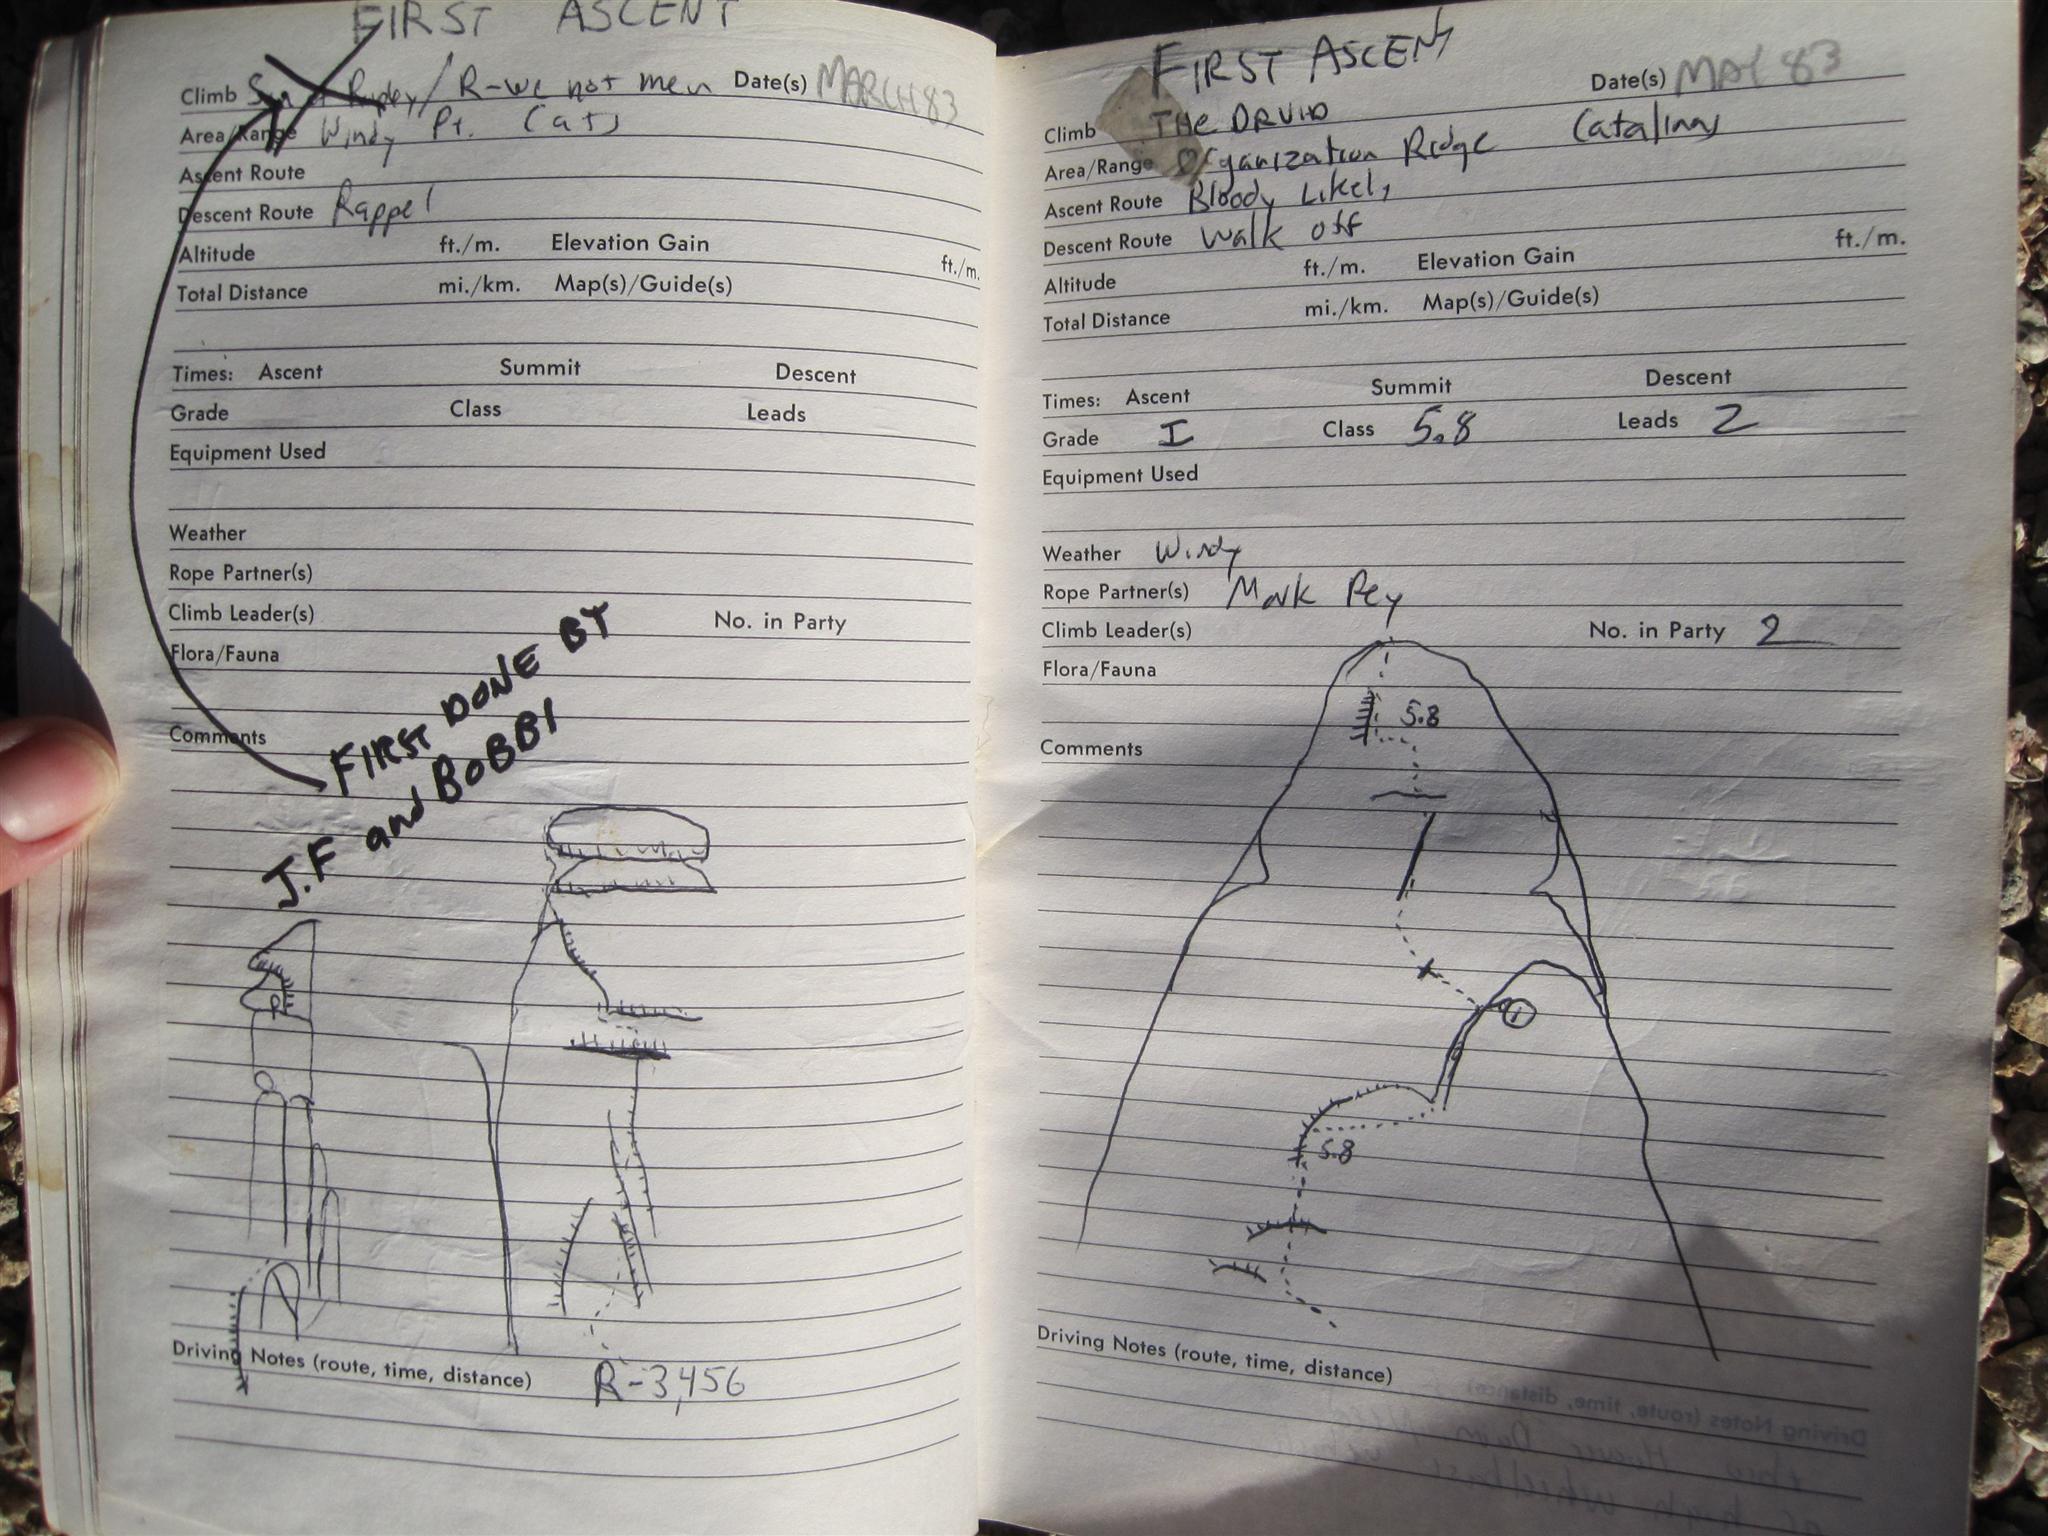 FIRST ASCENT
Climb / R-we not men Date(s) MARCH 83
Area/Range Windy Pt. Cats
Ascent Route
Descent Route Rappel
Altitude ft./m. Elevation Gain ft./m.
Total Distance mi./km. Map(s)/Guide(s)
Times: Ascent Summit Descent
Grade Class Leads
Equipment Used
Weather
Rope Partner(s)
Climb Leader(s) No. in Party
Flora/Fauna
Comments
FIRST DONE BY
J.F and BOBBI
R
Driving Notes (route, time, distance)
R-3,456
FIRST ASCENT
Climb THE DRUID Date(s) MAY 83
Area/Range Organization Ridge Catalinas
Ascent Route Bloody Likely
Descent Route Walk off
Altitude ft./m. Elevation Gain ft./m.
Total Distance mi./km. Map(s)/Guide(s)
Times: Ascent Summit Descent
Grade I Class 5.8 Leads 2
Equipment Used
Weather Windy
Rope Partner(s) Mark
Climb Leader(s) No. in Party 2
Flora/Fauna
5.8
Comments
1
5.8
Driving Notes (route, time, distance)